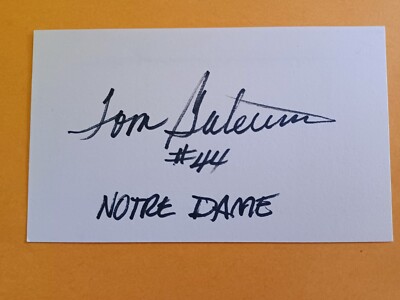 Tom Gatewood
#44
NOTRE DAME